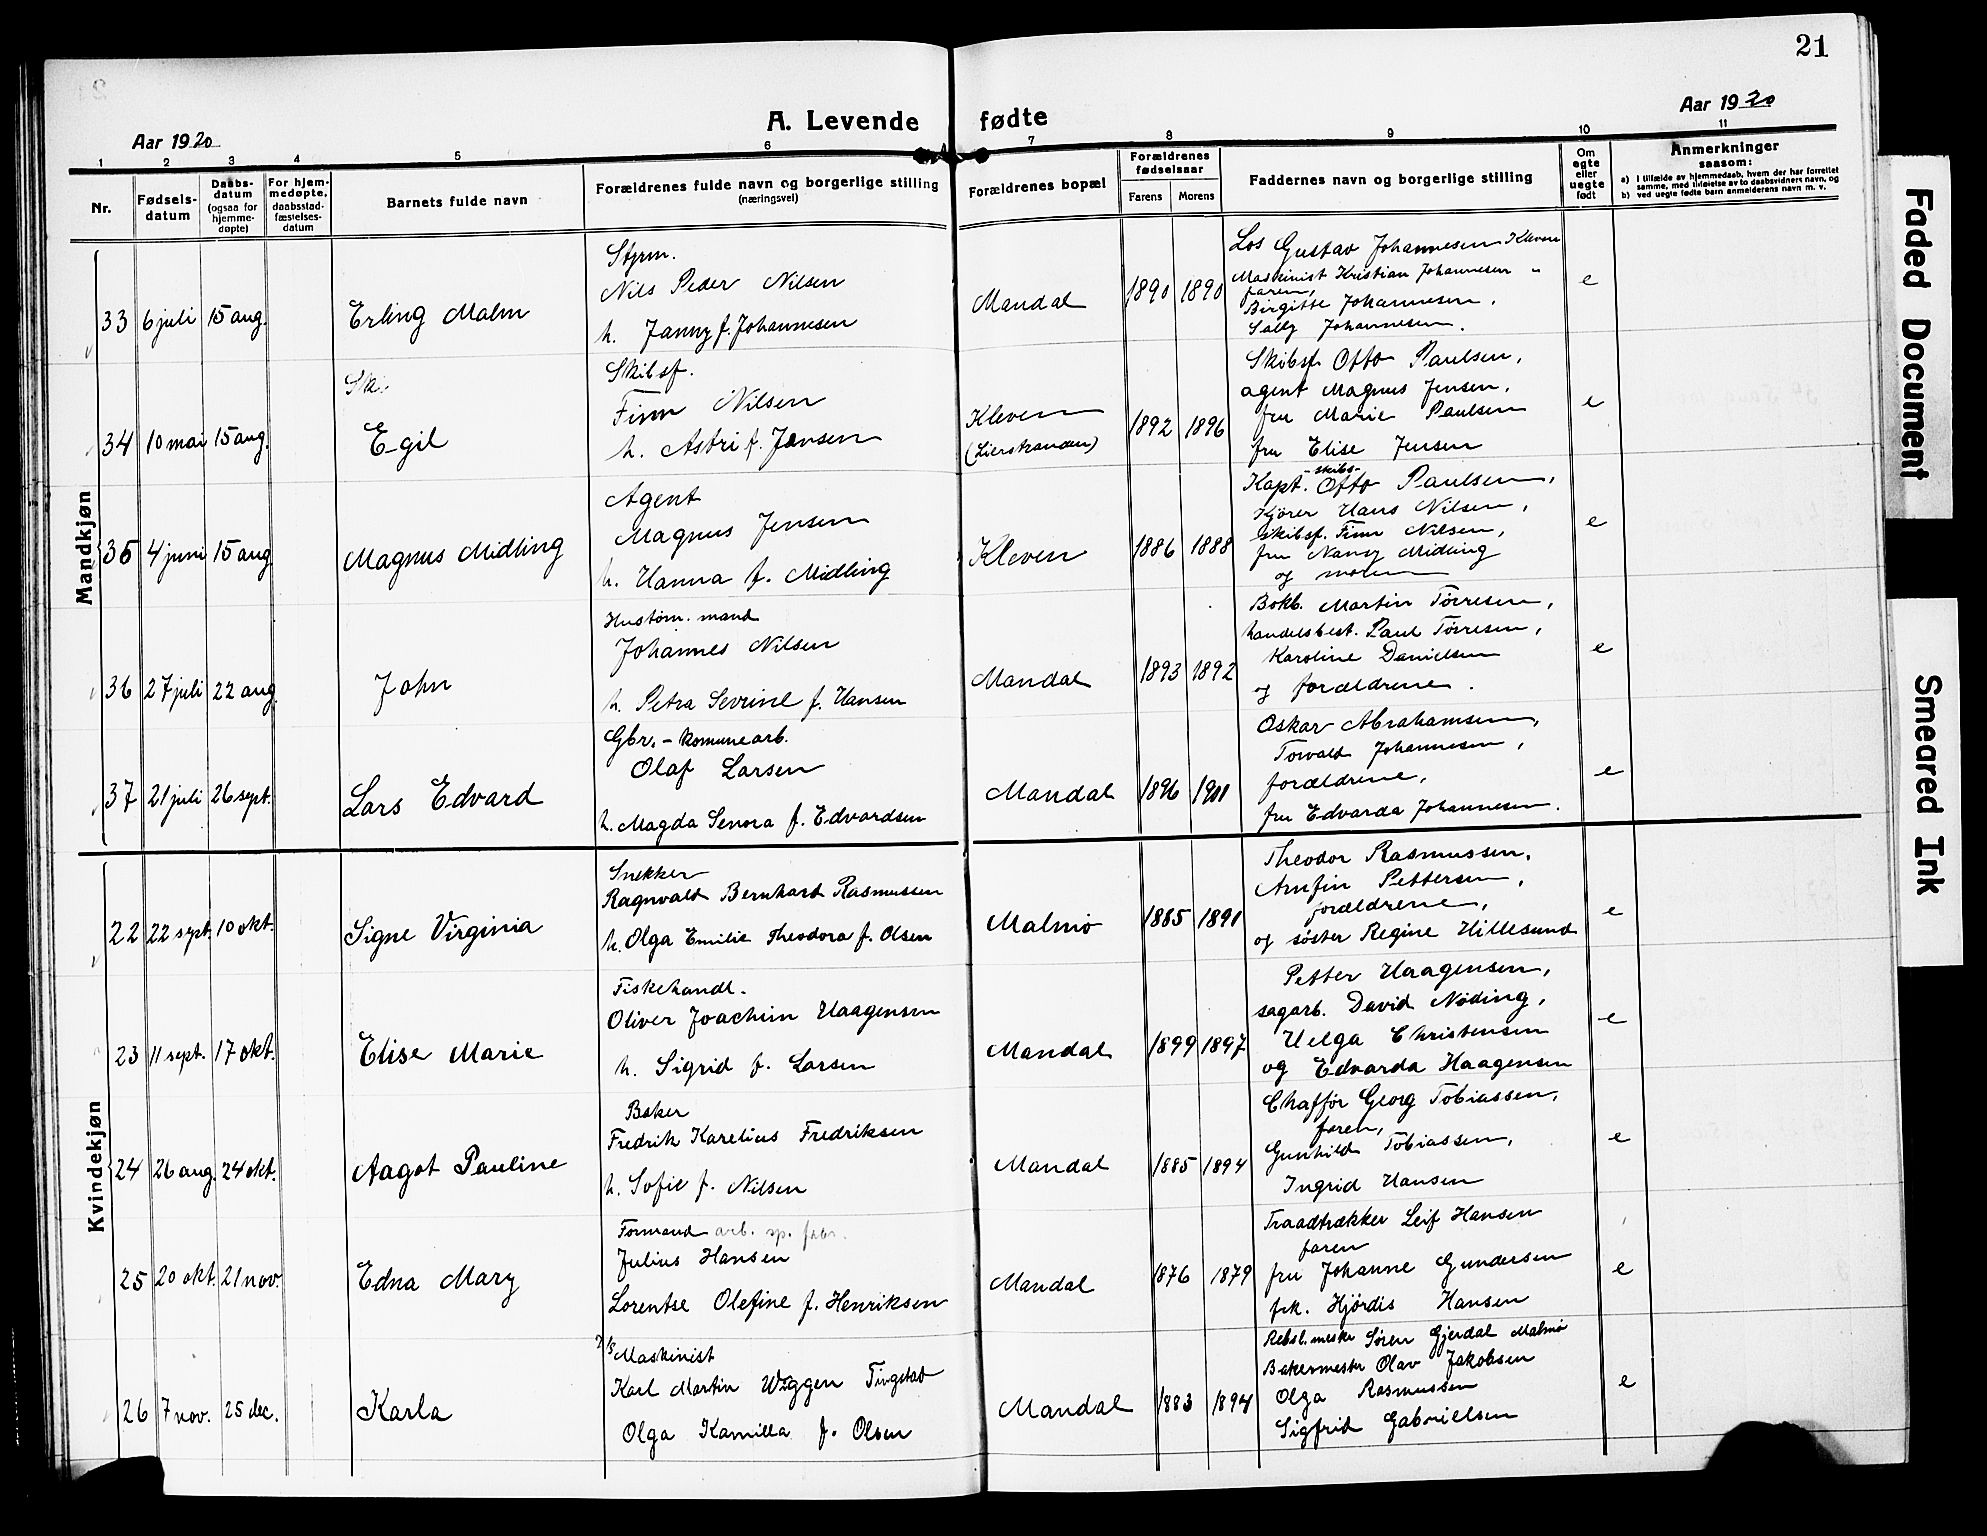 21
Aar 1920
A. Levende fødte
Aar 1920
1 2 3 4 5 6 7 8 9 10 11
Nr.
Fødsels-
datum
Daabs-
datum
(ogsaa for
hjemme-
døpte)
For hjem-
medøpte,
daabsstad-
fæstelses-
datum
Barnets fulde navn
Forældrenes fulde navn og borgerlige stilling
(næringsvei)
Forældrenes bopæl
Forældrenes
fødselsaar
Farens Morens
Faddernes navn og borgerlige stilling
Om
egte
eller
uegte
født
Anmerkninger
saasom:
a) I tilfælde av hjemmedaab, hvem der har forrettet
samme, med tilføielse av to daabsvidners navn, og
b) ved uegte fødte barn anmelderens navn m. v.
Mandkjøn
33 6 juli 15 aug. Erling Malm
Styrm.
Nils Peder Nilsen
h. Janny f. Johannesen
Mandal 1890 1890
Los Gustav Johannesen Kleven
Maskinist Kristian Johannesen "
faren,
Birgitte Johannesen,
Sally Johannesen.
e
34 10 mai 15 aug. Egil
Skibsf.
Finn Nilsen
h. Astri f. Jensen
Kleven
1892 1896
Skibsf. Otto Paulsen,
agent Magnus Jensen,
fru Marie Paulsen
fru Elise Jensen
e
35 4 juni 15 aug Magnus Midling
Agent
Magnus Jensen
h. Hanna f. Midling
Kleven 1886 1888
-skibs-
Kapt. Otto Paulsen,
Kjører Hans Nilsen,
skibsf. Finn Nilsen,
fru Nancy Midling
og moren
e
36 27 juli 22 aug. John
Hustøm. mand
Johannes Nilsen
h. Petra Sevrine f. Hansen
Mandal 1893 1892
Bokb. Martin Tørresen,
handelsbest. Paul Tørresen,
Karoline Danielsen
og forældrene.
e
37 21 juli 26 sept. Lars Edvard
Gbr. - komunearb.
Olaf Larsen
h. Magda Senora f. Edvardsen
Mandal 1896 1901
Oskar Abrahamsen,
Torvald Johannesen,
forældrene,
fru Edvarda Johannesen.
e
Kvindekjøn
22 22 sept. 10 okt. Signe Virginia
Snekker
Ragnvald Bernhard Rasmussen
h. Olga Emilie Theodora f. Olsen
Malmø 1885 1891
Theodor Rasmussen,
Arnfin Pettersen,
forældrene,
og søster Regine Hillesund
e
23 11 sept. 17 okt. Elise Marie
Fiskehandl.
Oliver Joachim Haagensen
h. Sigrid f. Larsen
Mandal 1899 1897
Petter Haagensen,
sagarb. David Nøding,
Helga Christensen
og Edvarda Haagensen
e
24 26 aug. 24 okt. Aagot Pauline
Baker
Fredrik Karelius Fredriksen
h. Sofie f. Nilsen
Mandal 1885 1894
Chaffør Georg Tobiassen,
faren,
Gunhild Tobiassen,
Ingrid Hansen
e
25 20 okt. 21 nov. Edna Mary
Formand arb. sp. fabr.
Julius Hansen
Lorentse Olefine f. Henriksen
Mandal 1876 1879
Traadtrækker Leif Hansen
faren
fru Johanne Gundersen
frk. Hjørdis Hansen
e
26 7 nov. 25 dec. Karla
Maskinist
Karl Martin Wiggen Tingstad
Olga Kamilla f. Olsen
Mandal 1883 1894
Rebsl.mester Søren Gjerdal Malmø
Bakermester Olav Jakobsen
Olga Rasmussen
Sigfrid Gabrielsen
e
Faded Document
Smeared Ink